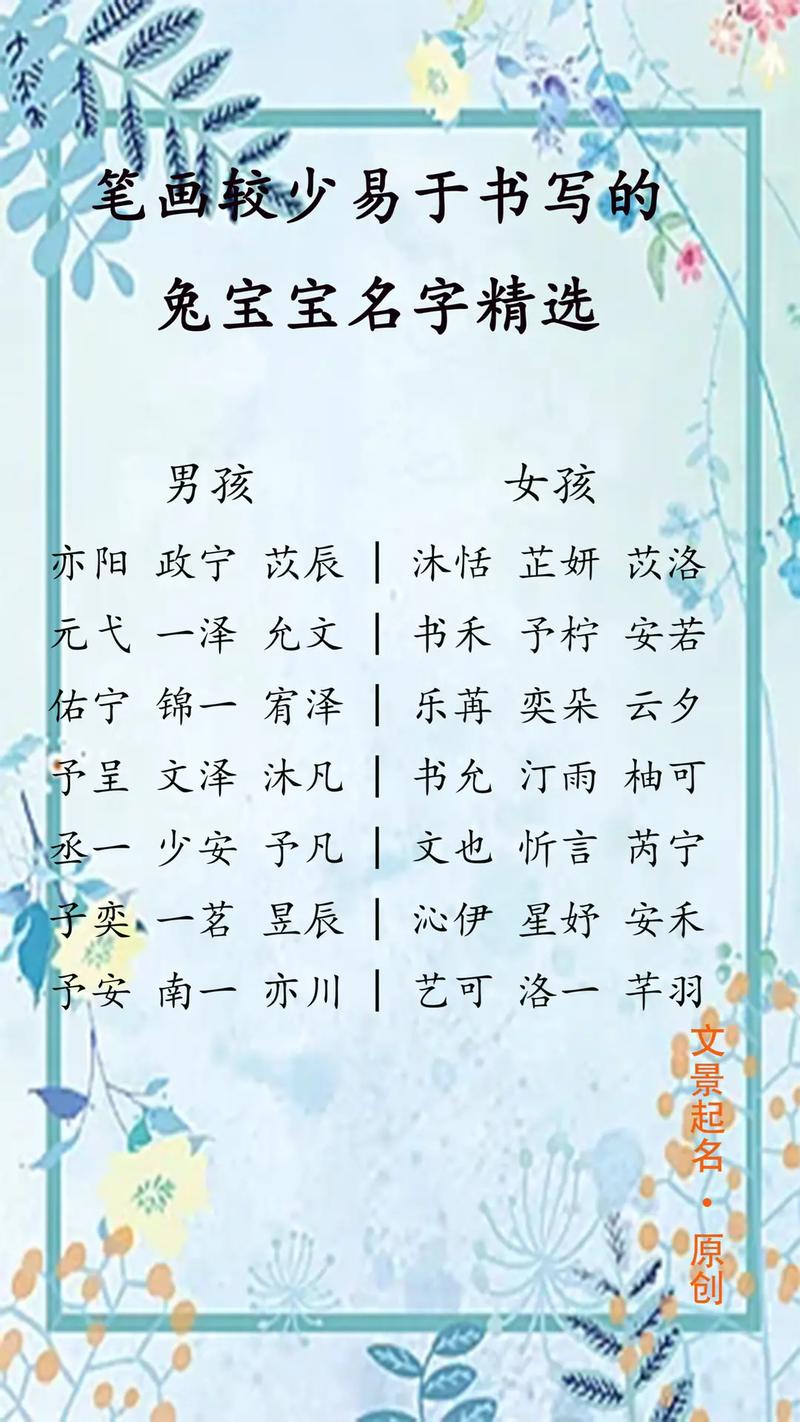 笔画较少易于书写的
兔宝宝名字精选
男孩 女孩
亦阳 政宁 苡辰 | 沐恬 芷妍 苡洛
元弋 一泽 允文 | 书禾 予柠 安若
佑宁 锦一 宥泽 | 乐苒 奕朵 云夕
予呈 文泽 沐凡 | 书允 汀雨 柚可
丞一 少安 予凡 | 文也 忻言 芮宁
子奕 一茗 昱辰 | 沁伊 星妤 安禾
予安 南一 亦川 | 艺可 洛一 芊羽
文景起名·原创